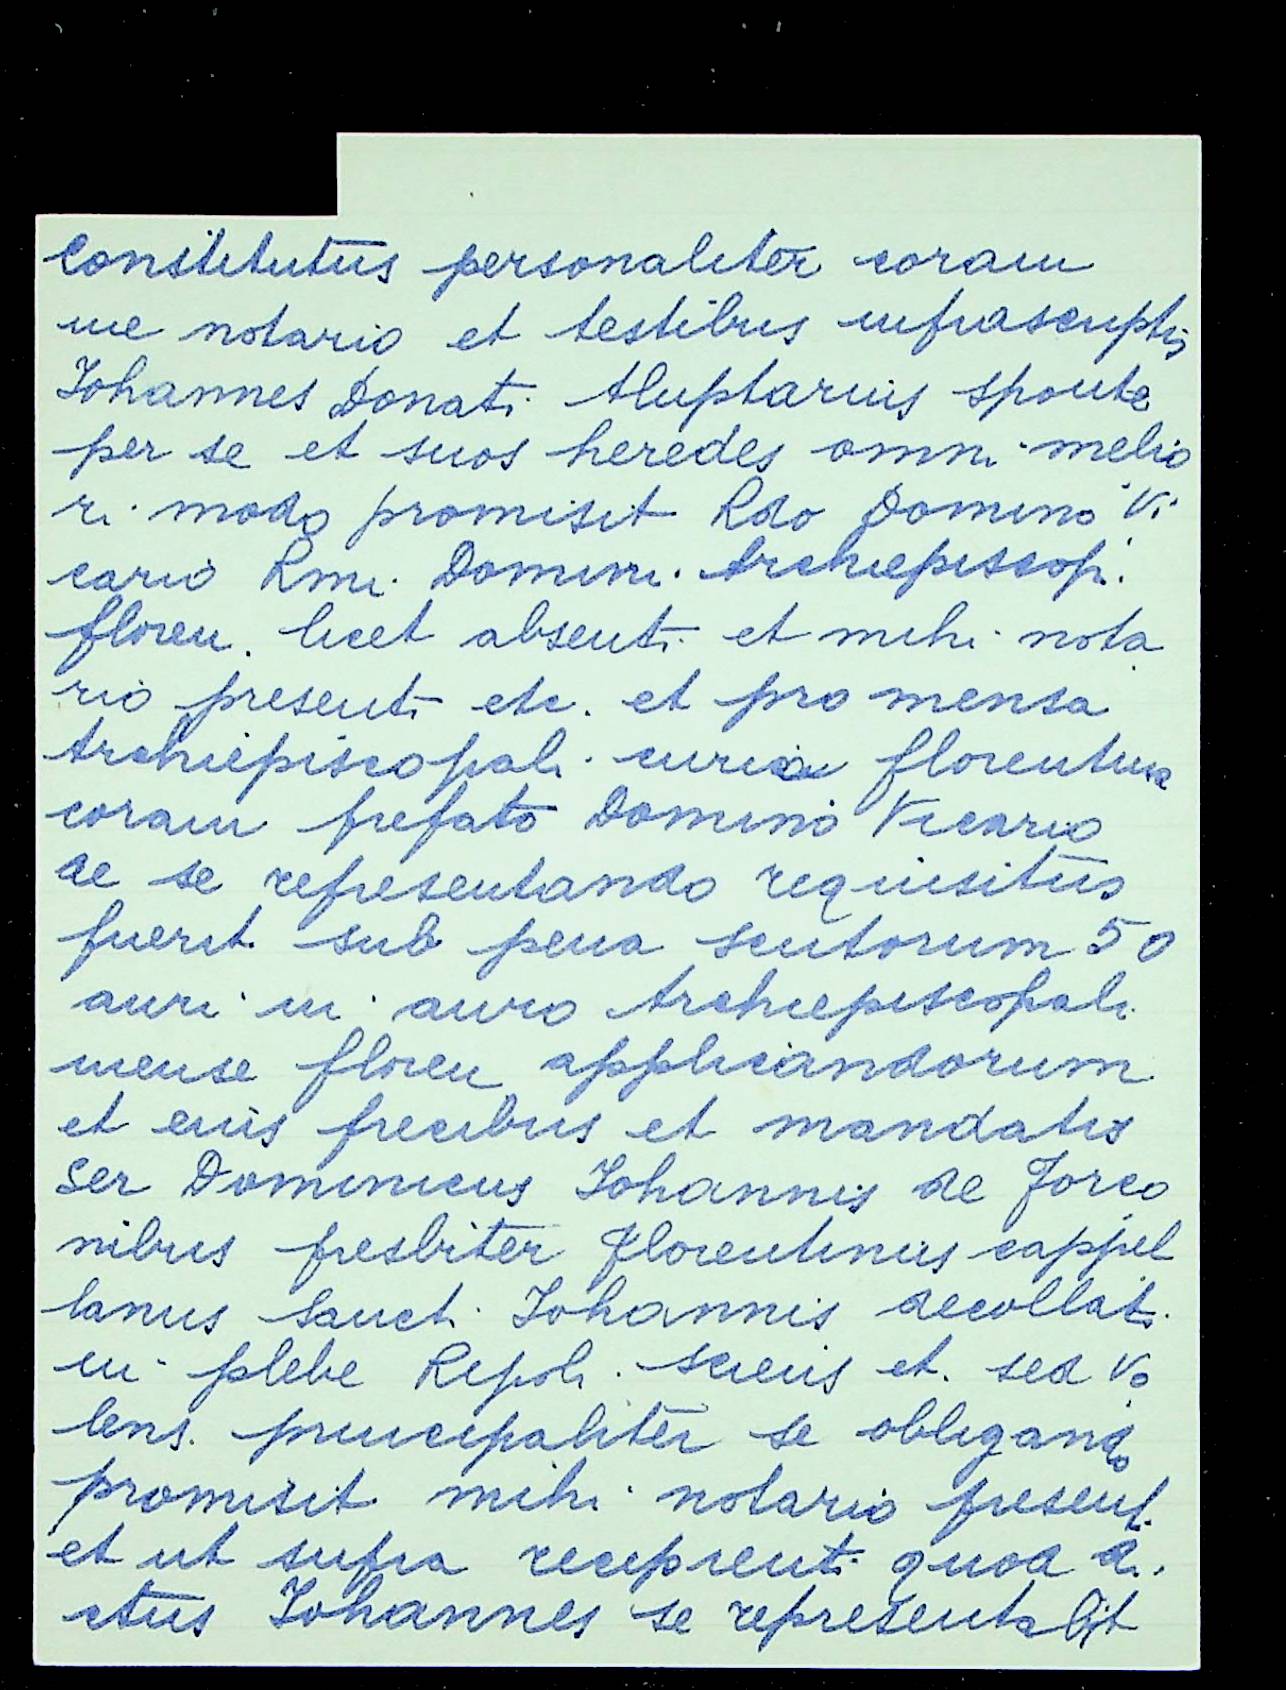 Constitutus personaliter coram
me notario et testibus infrascriptis
Iohannes Donati sponte
per se et suos heredes omni melio
ri modo promisit Rdo Domino Vi
cario Rmi Domini Archiepiscopi
floren. licet absenti et mihi nota
rio presenti etc. et pro mensa
Archiepiscopali curia florentina
coram prefato Domino Vicario
de se representando requisitus
fuerit sub pena scutorum 50
auri in auro Archiepiscopali
mense floren applicandorum
et eius precibus et mandatis
Ser Dominicus Iohannis de Jorco
nibus presbiter florentinus cappel
lanus Sancti Iohannis decollati
in plebe Ripoli. sciens et. sed vo
lens. principaliter se obligando
promisit mihi notario presenti
et ut supra recipienti quod di.
ctus Iohannes se representabit